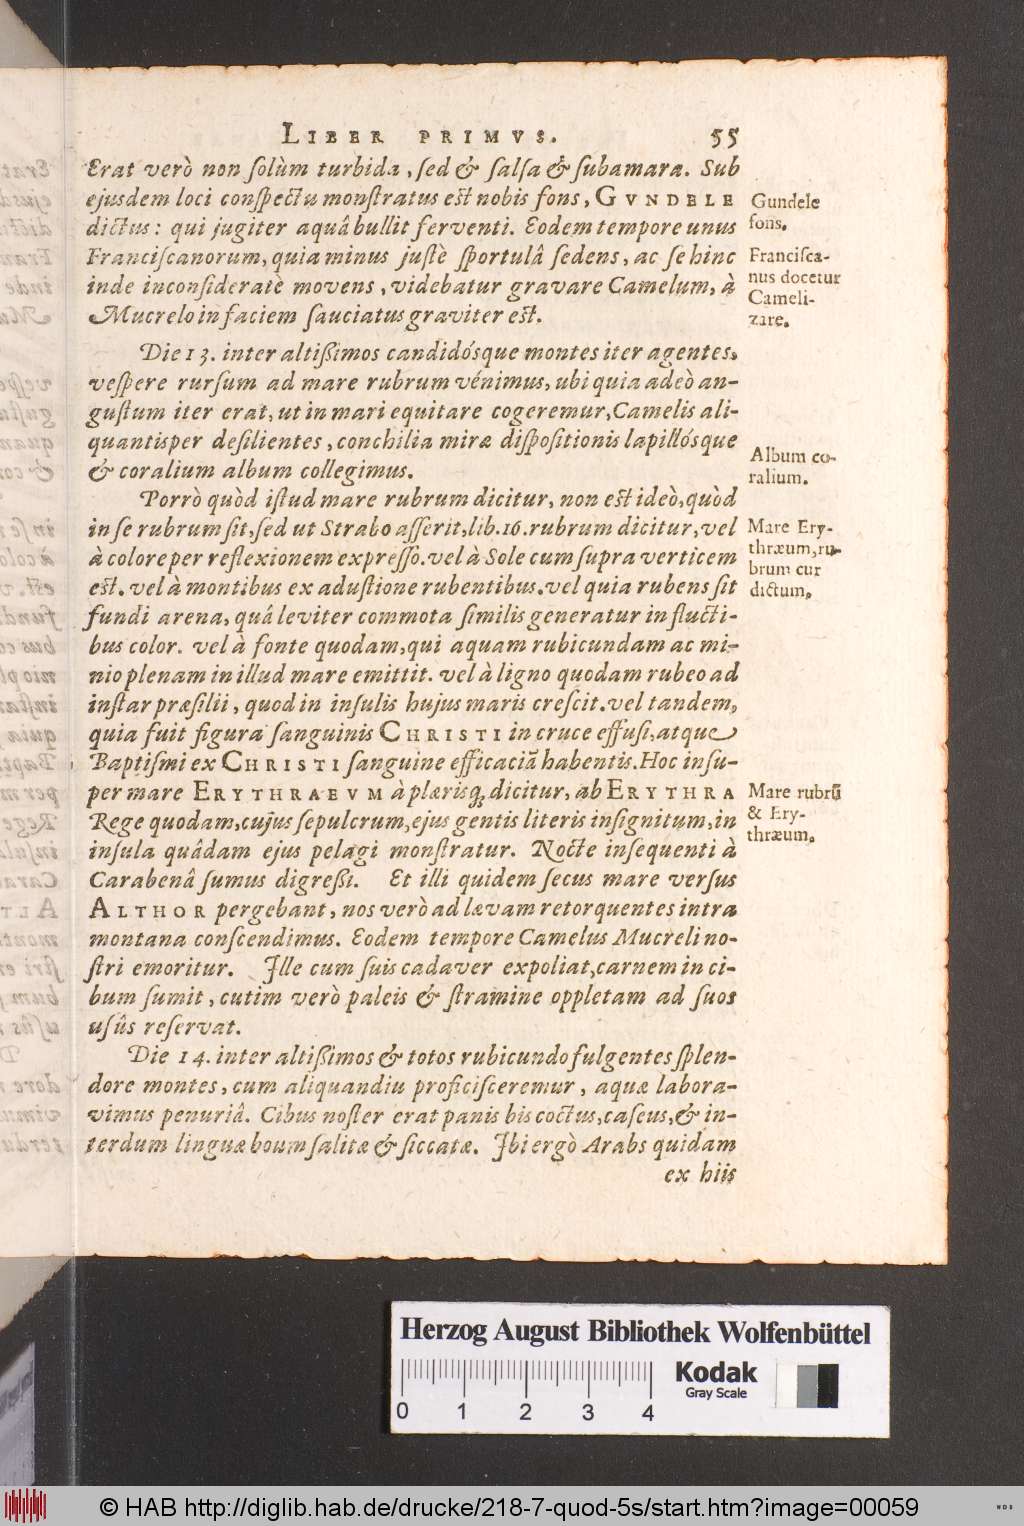 LIBER PRIMVS. 55
Erat verò non solùm turbida, sed & salsa & subamara. Sub
ejusdem loci conspectu monstratus est nobis fons, GVNDELE
dictus: qui jugiter aquâ bullit ferventi. Eodem tempore unus
Franciscanorum, quia minus justè sportulâ sedens, ac se hinc
inde inconsideratè movens, videbatur gravare Camelum, à
Mucrelo in faciem sauciatus graviter est.
Gundele
fons.
Francisca-
nus docetur
Cameli-
zare.
Die 13. inter altißimos candidósque montes iter agentes,
vespere rursum ad mare rubrum vénimus, ubi quia adeò an-
gustum iter erat, ut in mari equitare cogeremur, Camelis ali-
quantisper desilientes, conchilia miræ dispositionis lapillósque
& coralium album collegimus.
Album co-
ralium.
Porrò quòd istud mare rubrum dicitur, non est ideò, quòd
in se rubrum sit, sed ut Strabo asserit, lib. 16. rubrum dicitur, vel
à colore per reflexionem expresso. vel à Sole cum supra verticem
est. vel à montibus ex adustione rubentibus. vel quia rubens sit
fundi arena, quâ leviter commota similis generatur in flucti-
bus color. vel à fonte quodam, qui aquam rubicundam ac mi-
nio plenam in illud mare emittit. vel à ligno quodam rubeo ad
instar præsilii, quod in insulis hujus maris crescit. vel tandem,
quia fuit figura sanguinis CHRISTI in cruce effusi, atque
Baptismi ex CHRISTI sanguine efficaciã habentis. Hoc insu-
per mare ERYTHRAEVM à plærisq; dicitur, ab ERYTHRA
Rege quodam, cujus sepulcrum, ejus gentis literis insignitum, in
insula quâdam ejus pelagi monstratur. Nocte insequenti à
Carabenâ sumus digreßi. Et illi quidem secus mare versus
ALTHOR pergebant, nos verò ad lævam retorquentes intra
montana conscendimus. Eodem tempore Camelus Mucreli no-
stri emoritur. Ille cum suis cadaver expoliat, carnem in ci-
bum sumit, cutim verò paleis & stramine oppletam ad suos
usûs reservat.
Mare Ery-
thræum, ru-
brum cur
dictum.
Mare rubrũ
& Ery-
thræum.
Die 14. inter altißimos & totos rubicundo fulgentes splen-
dore montes, cum aliquandiu proficisceremur, aquæ labora-
vimus penuriâ. Cibus noster erat panis bis coctus, caseus, & in-
terdum linguæ boum salitæ & siccatæ. Ibi ergò Arabs quidam
ex hiis
Herzog August Bibliothek Wolfenbüttel
Kodak
Gray Scale
0 1 2 3 4
© HAB http://diglib.hab.de/drucke/218-7-quod-5s/start.htm?image=00059